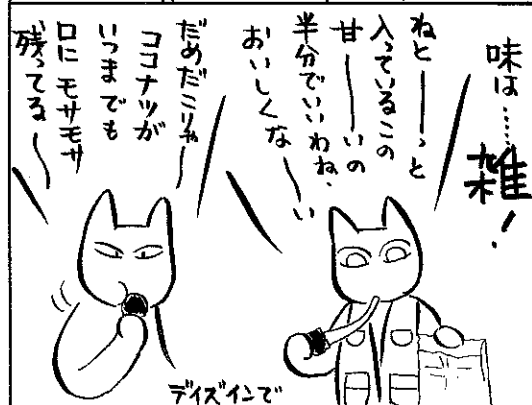 味は……
雑!
ねと――っと
入っているこの
甘――いの
半分でいいわね、
おいしくな〜い
だめだこりゃ―
ココナツが
いつまでも
口にモサモサ
残ってる〜
デイズインで